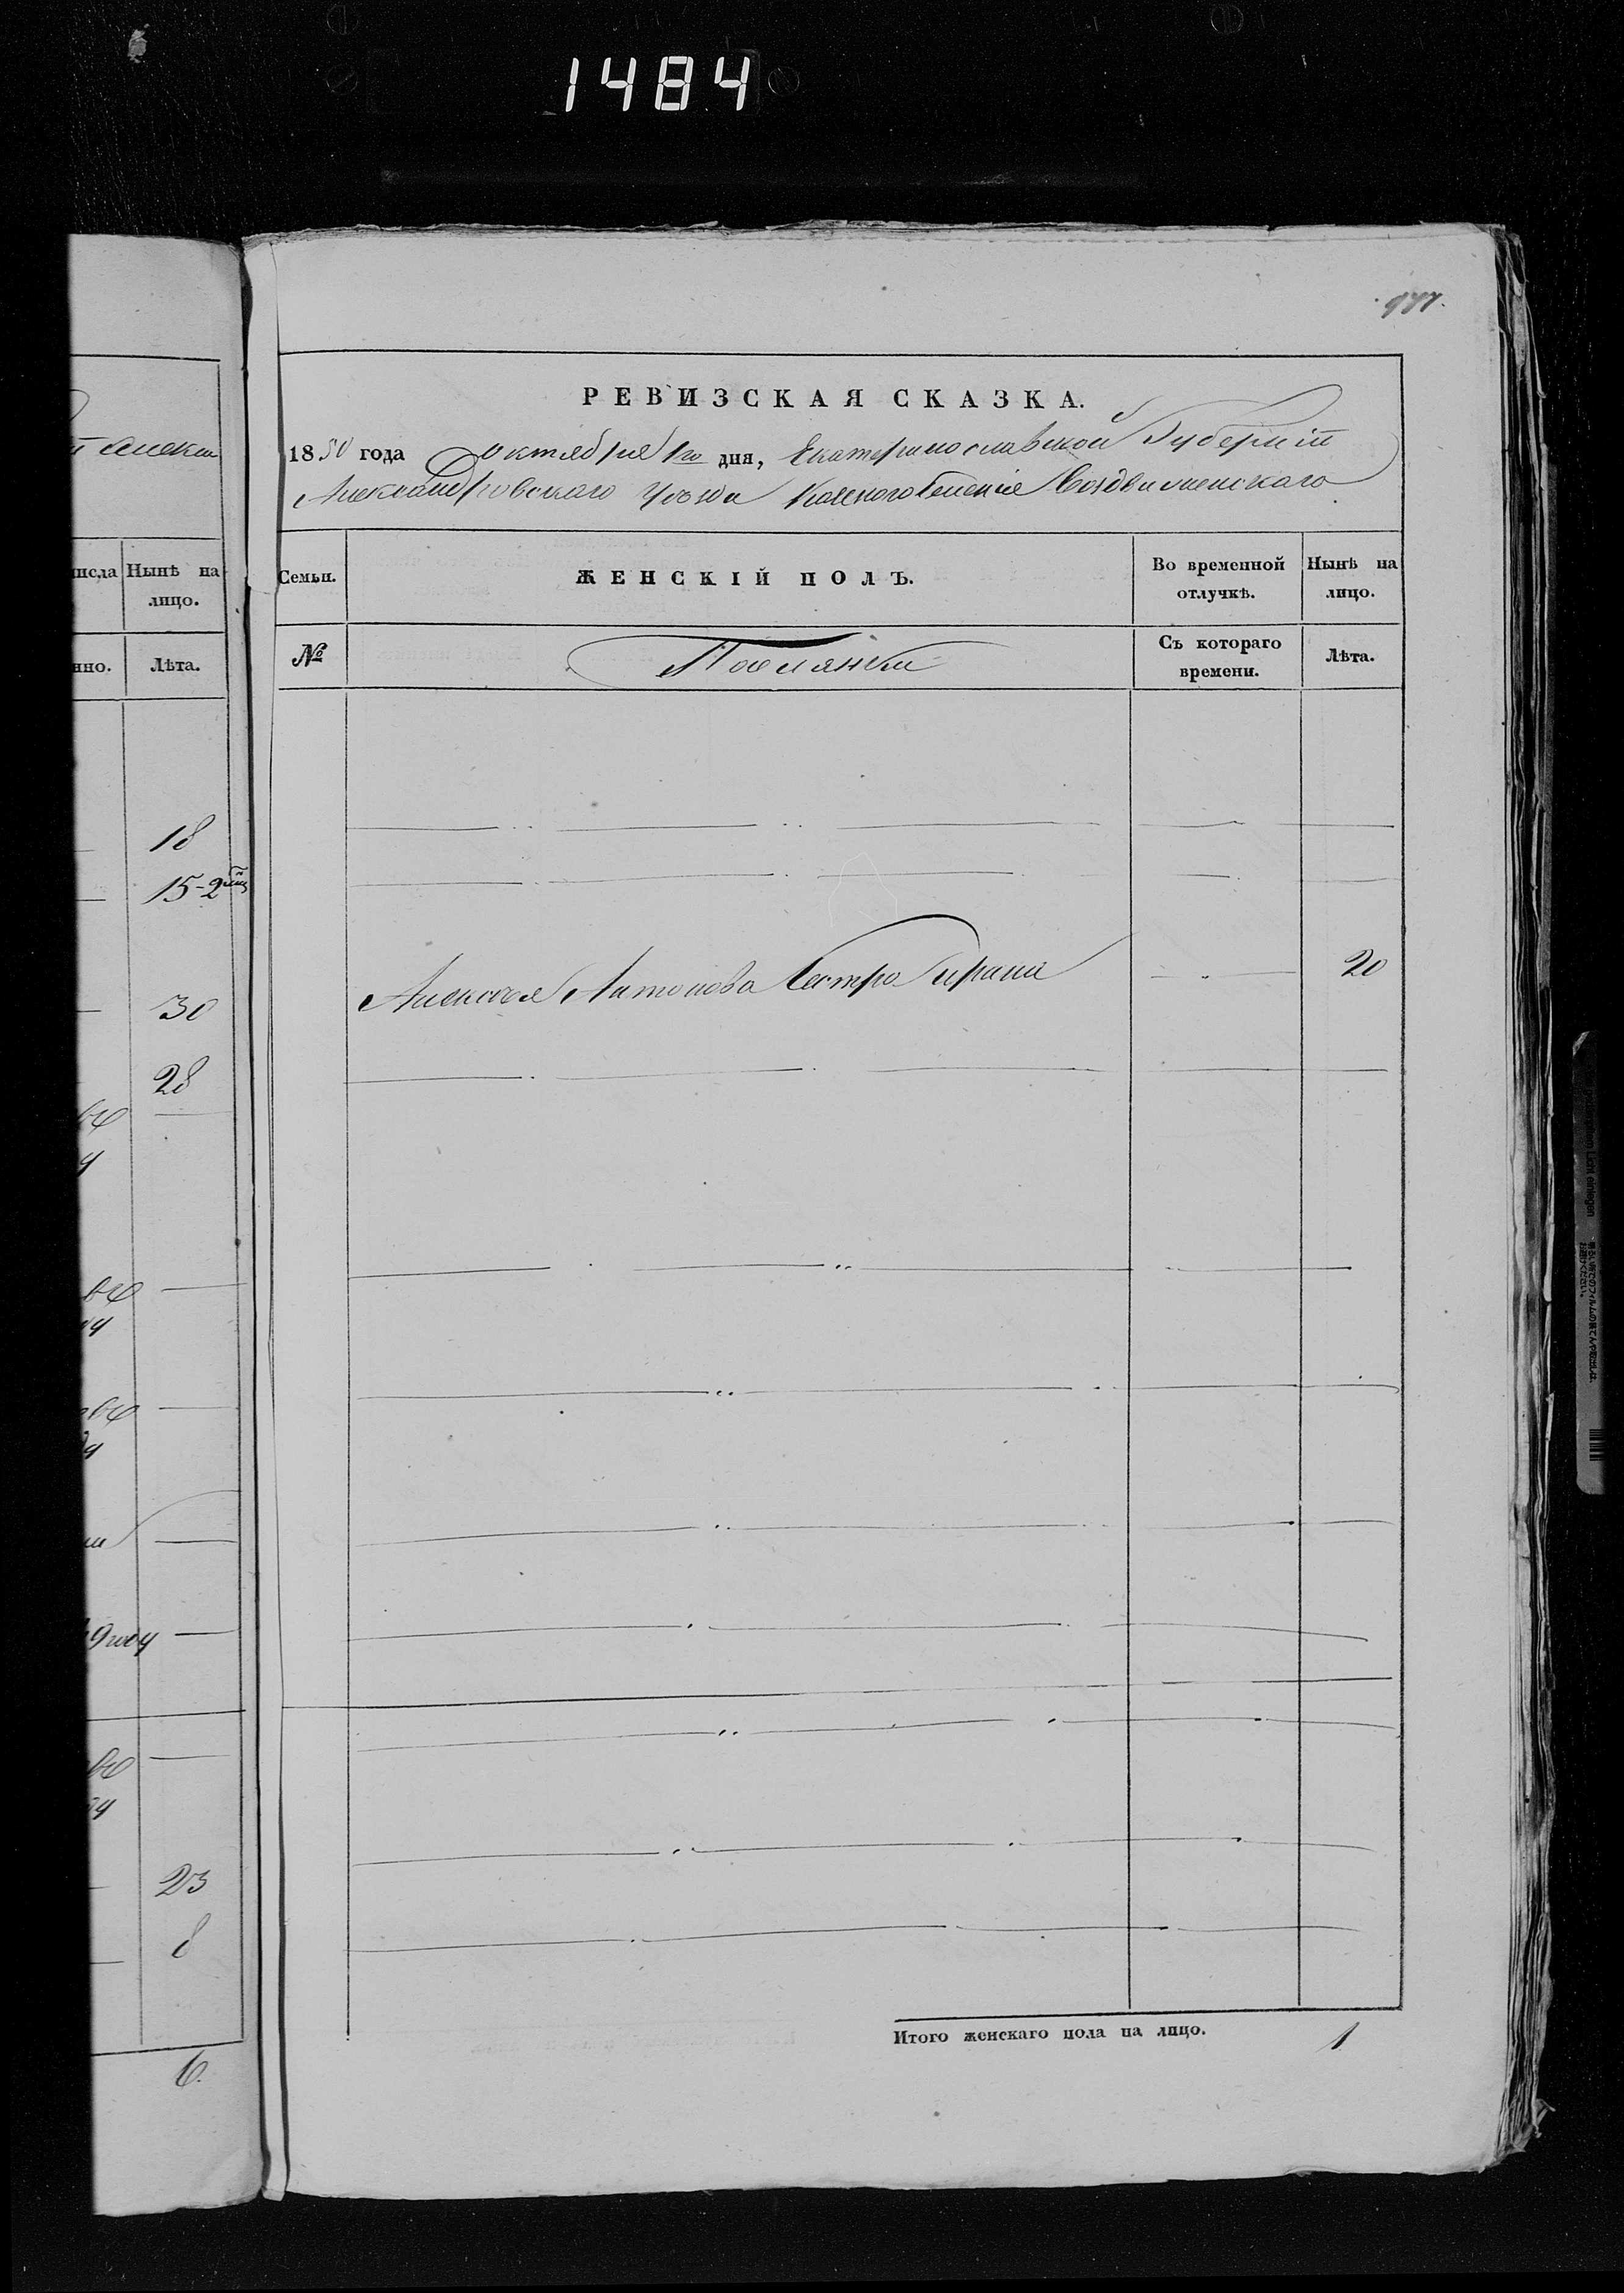 1484
977.
РЕВИЗСКАЯ СКАЗКА.
1850 года октября 1го дня, Екатеринославской Губерніи
Александровскаго Уѣзда Казенного Селенія Воздвиженскаго
Семьи. ЖЕНСКІЙ ПОЛЪ. Во временной отлучкѣ. Нынѣ на лицо.
№ Поселянки Съ котораго времени. Лѣта.
Алексея Антонова Сестра Ирина 20
Итого женскаго пола на лицо. 1
Нынѣ на
лицо.
Лѣта.
18
15-2
30
28
23
8
6.